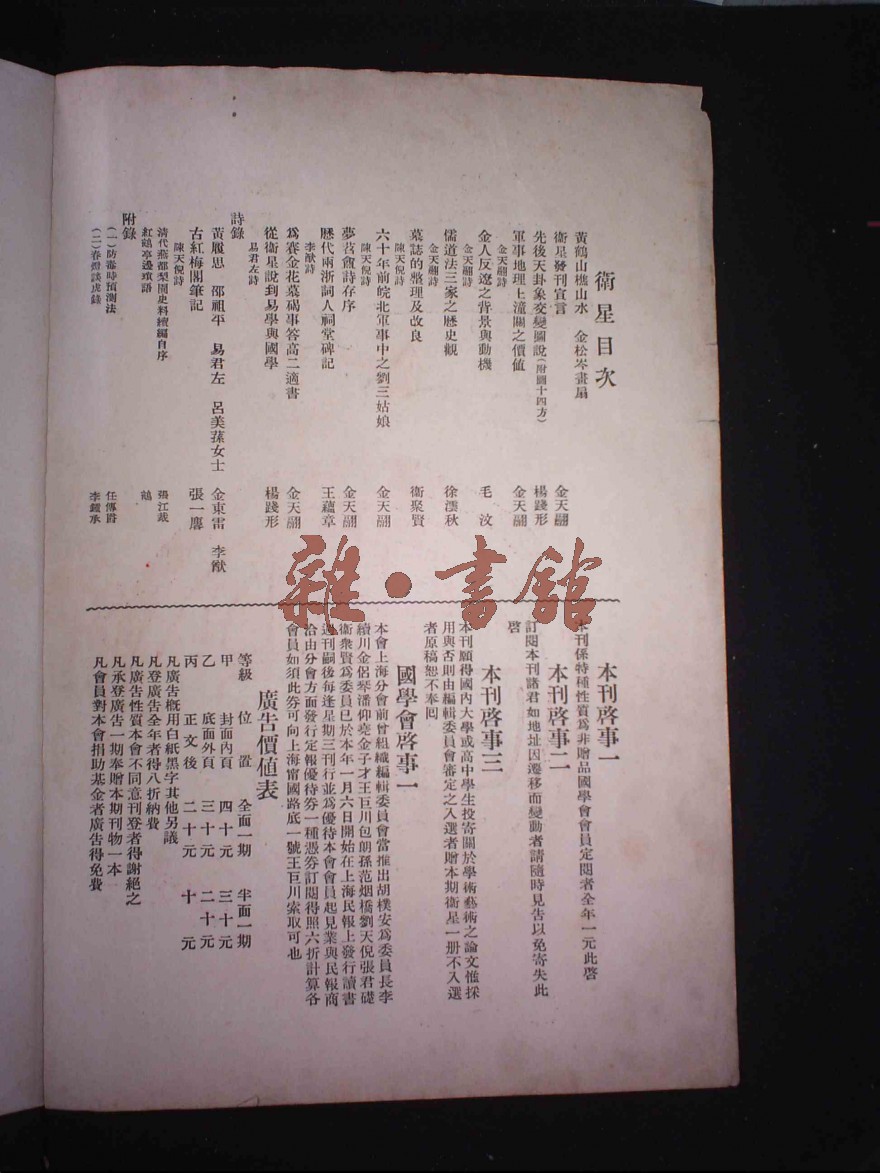 衞星目次
黃鶴山樵山水　金松岑畫扇
衞星發刊宣言　金天翮
先後天卦象交變圖說（附圖十四方）　楊踐形
軍事地理上潼關之價値　金天翮
金天翮詩
金人反遼之背景與動機　毛汶
金天翮詩
儒道法三家之歷史觀　徐澐秋
金天翮詩
墓誌的整理及改良　衞聚賢
陳天倪詩
六十年前皖北軍事中之劉三姑娘　金天翮
陳天倪詩
夢苕盦詩存序　金天翮
歷代兩浙詞人祠堂碑記　王蘊章
李猷詩
爲賽金花墓碣事答高二適書　金天翮
從衞星說到易學與國學　楊踐形
易君左詩
詩錄
黃履思　邵祖平　易君左　呂美蓀女士　金東雷　李猷
古紅梅閣筆記　張一麐
陳天倪詩
清代燕都梨園史料續編自序　張江裁
紅鶴亭邊瑣語　鶴
附錄
（一）防毒時預測法　任傳爵
（二）春燈談虎錄　李鍾承
本刊啓事一
本刊係特種性質爲非贈品國學會會員定閱者全年一元此啓
本刊啓事二
訂閱本刊諸君如地址因遷移而變動者請隨時見告以免寄失此
啓
本刊啓事三
本刊願得國內大學或高中學生投寄關於學術藝術之論文惟採
用與否則由編輯委員會審定之入選者贈本期衞星一册不入選
者原稿恕不奉囘
國學會啓事一
本會上海分會前曾組織編輯委員會當推出胡樸安爲委員長李
續川金侶琴潘仰堯金子才王巨川包朗孫范烟橋劉天倪張君礎
衞衆賢爲委員已於本年一月六日開始在上海民報上發行讀書
週刊嗣後每逢星期三刊行並爲優待本會會員起見業與民報商
洽由分會方面發行定報優待券一種憑券訂閱得照六折計算各
會員如須此券可向上海甯國路底一號王巨川索取可也
廣吿價値表
等級　位置　全面一期　半面一期
甲　封面內頁　四十元　三十元
乙　底面外頁　三十元　二十元
丙　正文後　二十元　十元
凡廣吿槪用白紙黑字其他另議
凡登廣吿全年者得八折納費
凡廣吿性質本會不同意刊登者得謝絕之
凡承登廣吿一期奉贈本期刊物一本
凡會員對本會捐助基金者廣吿得免費
雜・書館